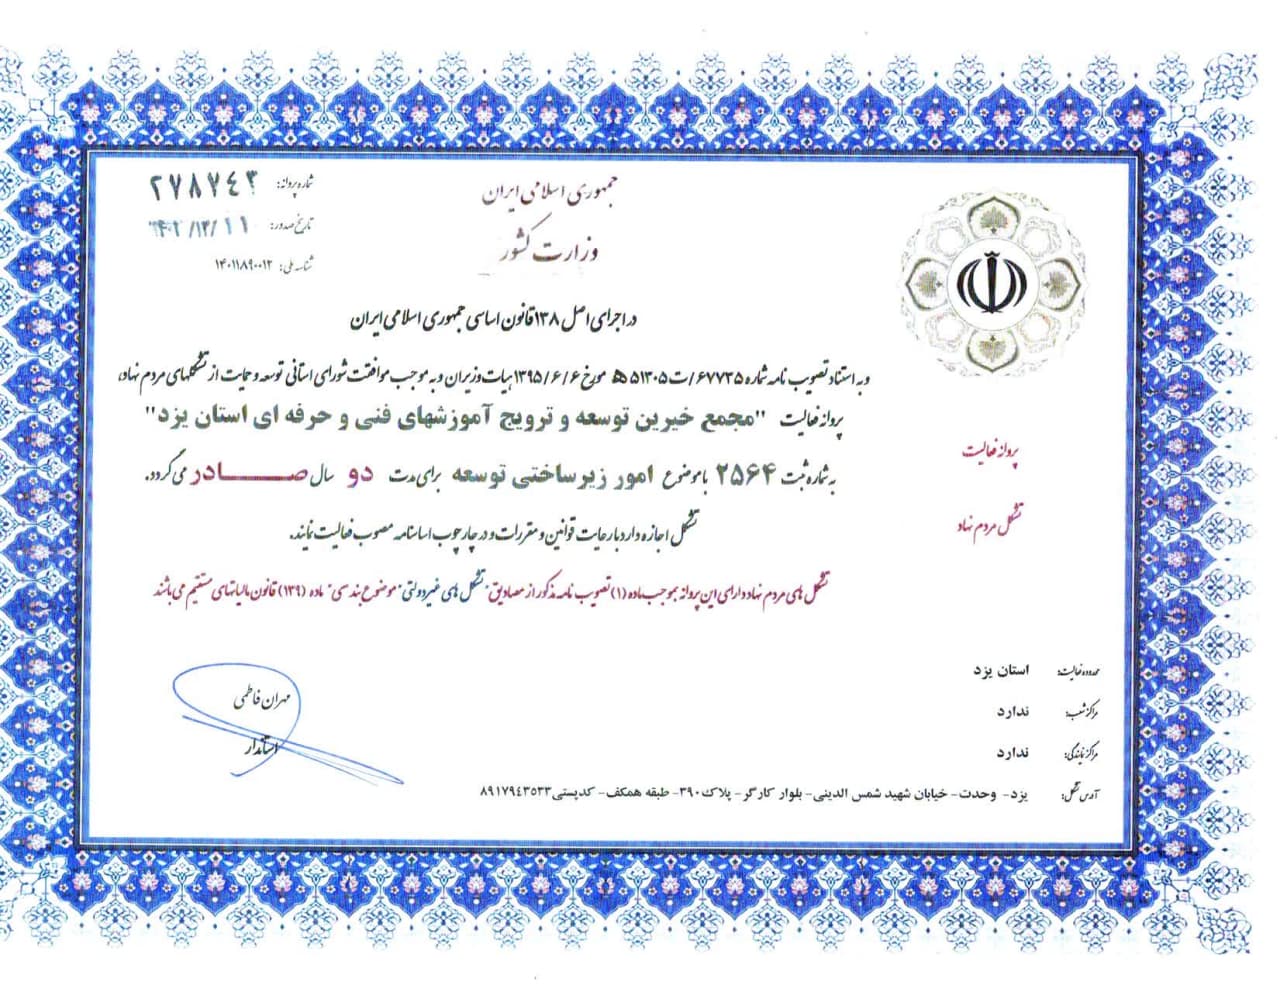 جمهوری اسلامی ایران
وزارت کشور
شماره پروانه: ۲۷۸۷۴۳
تاریخ صدور: ۱۴۰۲/۱۲/۱۱
شناسه ملی: ۱۴۰۱۱۸۹۰۰۱۲
در اجرای اصل ۱۳۸ قانون اساسی جمهوری اسلامی ایران
و به استناد تصویب نامه شماره ۶۷۷۳۵/ت۵۱۳۰۵ ه مورخ ۱۳۹۵/۶/۶ هیات وزیران و به موجب موافقت شورای استانی توسعه و حمایت از تشکلهای مردم نهاد،
پروانه فعالیت "مجمع خیرین توسعه و ترویج آموزشهای فنی و حرفه ای استان یزد"
به شماره ثبت ۲۵۶۴ با موضوع امور زیرساختی توسعه برای مدت دو سال صـــــادر می گردد.
تشکل اجازه دارد با رعایت قوانین و مقررات و در چارچوب اساسنامه مصوب فعالیت نمایند.
تشکل های مردم نهاد دارای این پروانه بموجب ماده (۱) تصویب نامه مذکور از مصادیق "تشکل های غیردولتی" موضوع بندی" ماده (۱۳۹) قانون مالیاتهای مستقیم می باشند
پروانه فعالیت
تشکل مردم نهاد
محدوده فعالیت: استان یزد
مراکز شعب: ندارد
مراکز نمایندگی: ندارد
آدرس تشکل: یزد- وحدت- خیابان شهید شمس الدینی- بلوار کارگر- پلاک۳۹۰- طبقه همکف- کدپستی۸۹۱۷۹۴۳۵۳۳
مهران فاطمی
استاندار